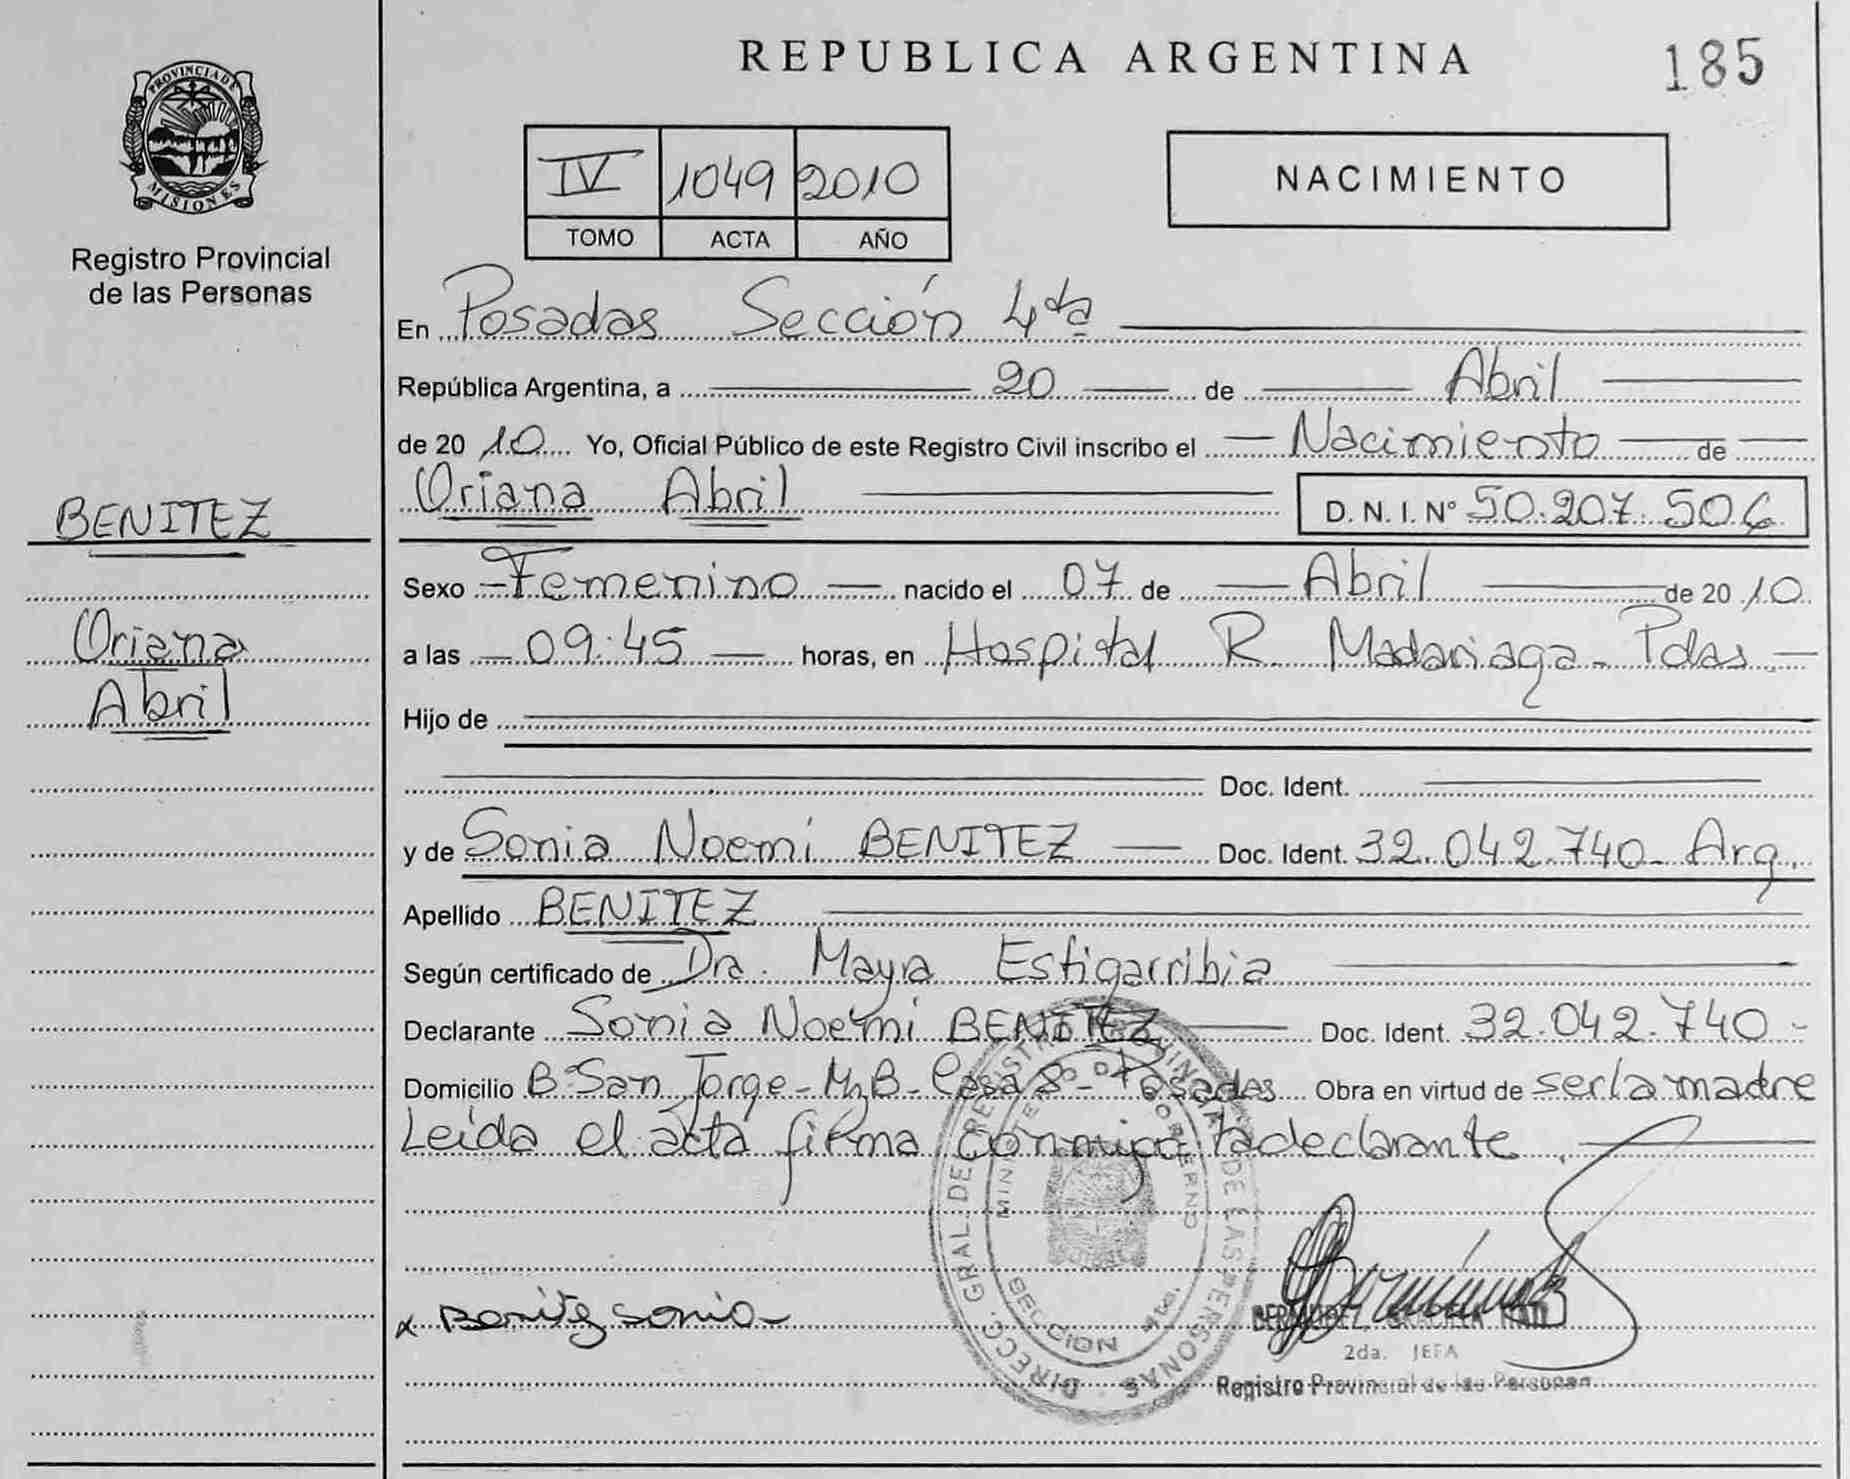 REPUBLICA ARGENTINA
185
PROVINCIA DE MISIONES
Registro Provincial
de las Personas
IV 1049 2010
TOMO ACTA AÑO
NACIMIENTO
En Posadas Sección 4ta
República Argentina, a 20 de Abril
de 20 10 Yo, Oficial Público de este Registro Civil inscribo el Nacimiento de
Oriana Abril D. N. I. N° 50.207.506
BENITEZ
Oriana
Abril
Sexo Femenino nacido el 07 de Abril de 20 10
a las 09:45 horas, en Hospital R. Madariaga - Pdas.
Hijo de
Doc. Ident.
y de Sonia Noemi BENITEZ Doc. Ident. 32.042.740 - Arg.
Apellido BENITEZ
Según certificado de Dra. Mayra Estigarribia
Declarante Sonia Noemi BENITEZ Doc. Ident. 32.042.740 -
Domicilio B° San Jorge - Mz B - Casa 8 - Posadas Obra en virtud de ser la madre
Leída el acta firma conmigo la declarante.
x Benitez Sonia
DIRECC. GRAL. DE REGISTRO PROVINCIAL DE LAS PERSONAS
MINISTERIO DE GOBIERNO
SECCION 4ta.
2da. JEFA
Registro Provincial de las Personas